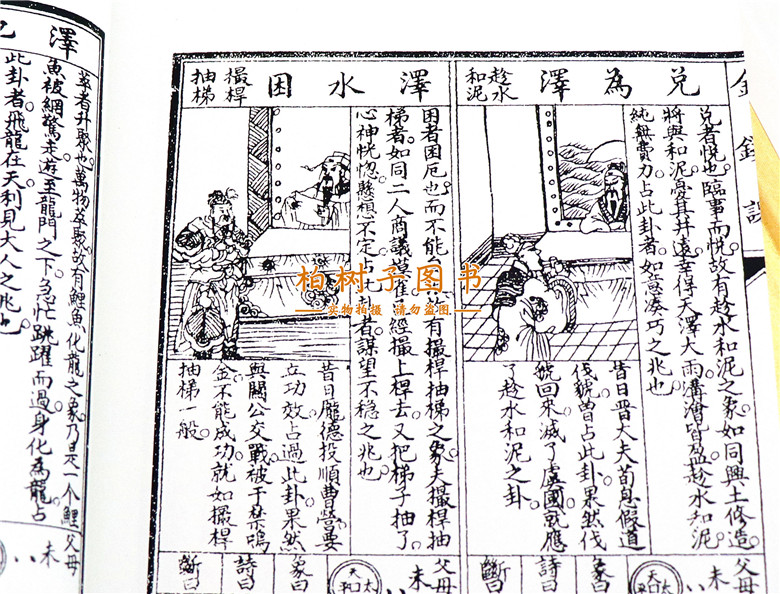 金錢課
兌為澤
趁水
和泥
兌者悅也臨事而悅故有趁水和泥之象如同興土修造
將與和泥憂其井遠幸得天澤大雨溝澮皆盈趁水和泥
純無費力占此卦者如意湊巧之兆也
昔日晋大夫荀息假道
伐虢曾占此卦果然伐
虢回來滅了虞國就應
了趁水和泥之卦
父母
未
象曰
詩曰
斷曰
澤水困
撮桿
抽梯
困者困厄也而不能 故有撮桿抽梯之象夫撮桿抽
梯者如同二人商議摸雀 經撮上桿去又把梯子抽了
心神恍惚懸想不定占此卦者謀望不穩之兆也
昔日龐德投順曹營要
立功效占過此卦果然
與關公交戰被于禁鳴
金不能成功就如撮桿
抽梯一般
父母
未
八
象曰
詩曰
斷曰
澤
萃者升聚也萬物萃聚故有鯉魚化龍之象乃是一个鯉
魚被網驚走遊至龍門之下急忙跳躍而過身化為龍占
此卦者飛龍在天利見大人之兆也
父母
未
八
柏树子图书
实物拍摄 请勿盗图